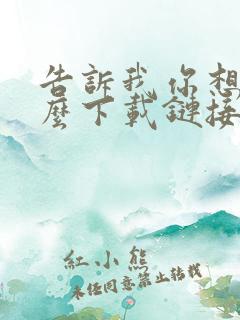 告訴我你想
麼下載鏈接
紅小熊
未經同意禁止轉載